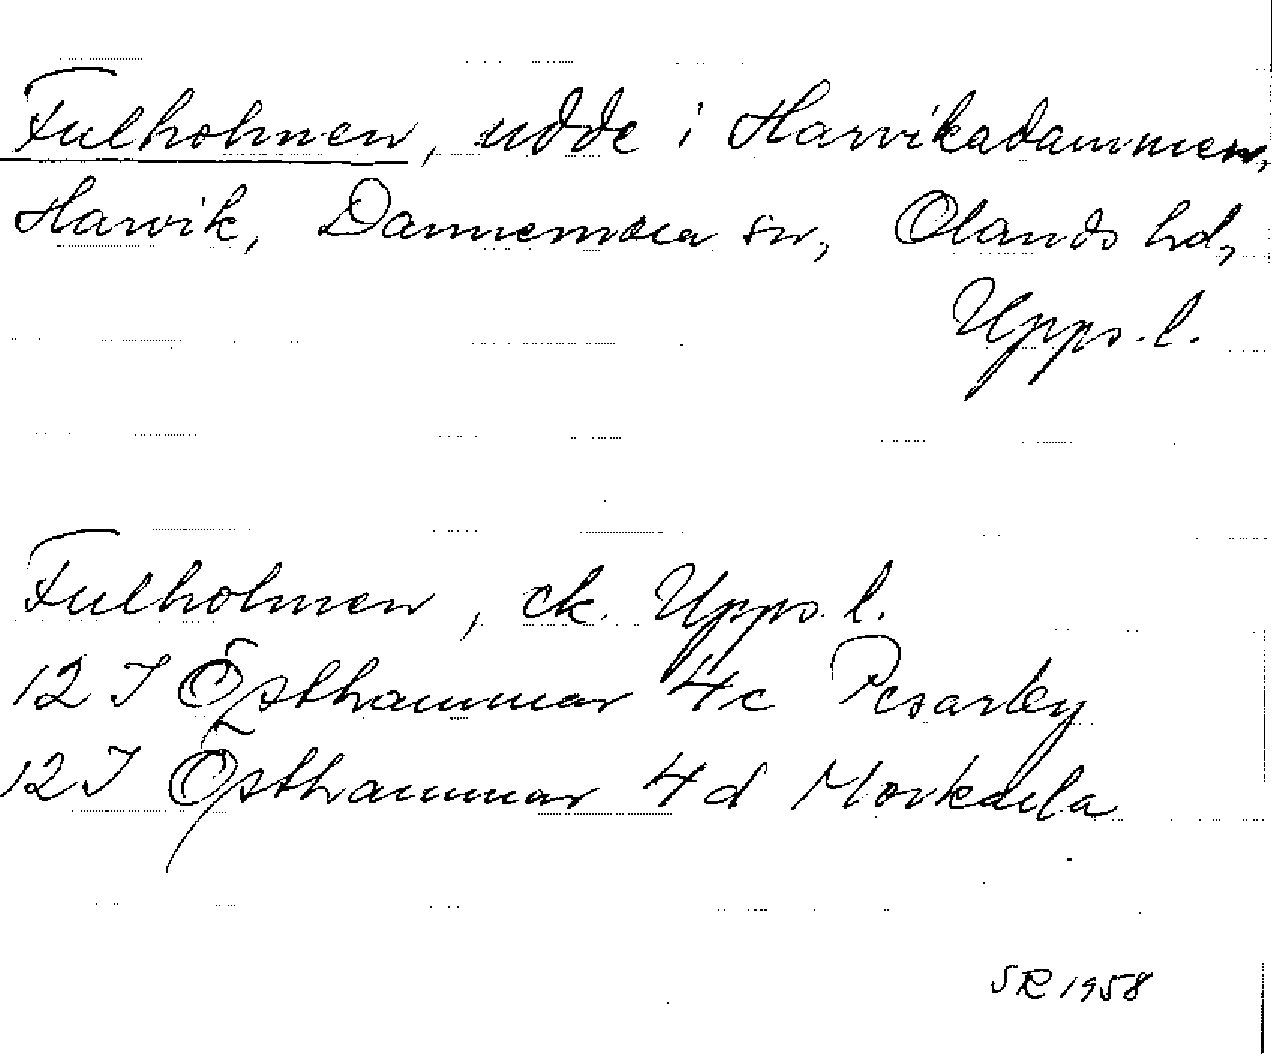 Fulholmen, udde i Harvikadammen,
Harvik, Dannemora sn, Olands hd,
Upps. l.
Fulholmen, ek. Upps. l.
12 I Östhammar 4c Pesarby
12 I Östhammar 4d Morkarla
SR 1958